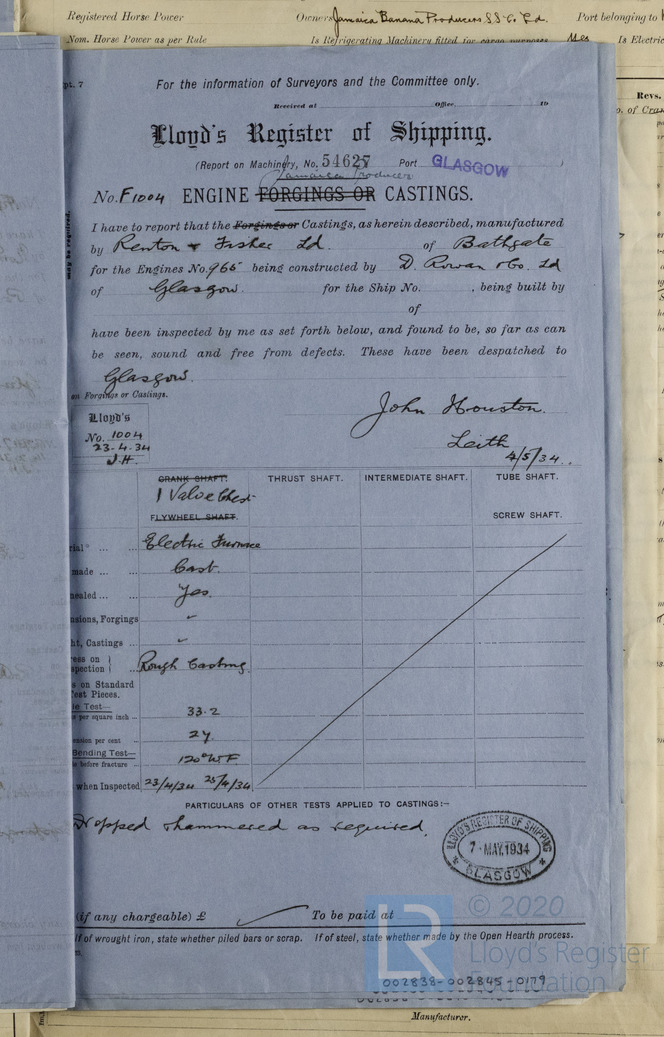 Registered Horse Power Owners Jamaica Banana Producers S.S. Co Ltd. Port belonging to
Nom. Horse Power as per Rule Is Refrigerating Machinery fitted for cargo purposes Yes Is Electric
Revs.
pt. 7
For the information of Surveyors and the Committee only.
Received at Office 19
Lloyd's Register of Shipping.
(Report on Machinery, No. 54627 Port GLASGOW )
Jamaica Producer
No. F1004 ENGINE FORGINGS OR CASTINGS.
I have to report that the Forgings or Castings, as herein described, manufactured
by Renton & Fisher Ld. of Bathgate
for the Engines No. 966 being constructed by D. Rowan & Co. Ld
of Glasgow for the Ship No. , being built by
of
have been inspected by me as set forth below, and found to be, so far as can
be seen, sound and free from defects. These have been despatched to
Glasgow.
on Forgings or Castings.
Lloyd's
No. 1004
23-4-34
J.H.
John Houston.
Leith
4/5/34.
may be required.
CRANK SHAFT. THRUST SHAFT. INTERMEDIATE SHAFT. TUBE SHAFT.
1 Valve Chest
FLYWHEEL SHAFT. SCREW SHAFT.
rial* ... ... Electric Furnace
made ... ... Cast.
ealed ... ... Yes.
nsions, Forgings
ht, Castings ...
ess on }
spection } ... Rough Casting.
s on Standard
Test Pieces.
le Test—
s per square inch ... 33.2
nsion per cent 27.
Bending Test—
le before fracture 120° W F
when Inspected 23/4/34 25/4/34.
PARTICULARS OF OTHER TESTS APPLIED TO CASTINGS:—
Dropped & hammered as required.
LLOYD'S REGISTER OF SHIPPING
7-MAY.1934
GLASGOW
(if any chargeable) £ To be paid at
If of wrought iron, state whether piled bars or scrap. If of steel, state whether made by the Open Hearth process.
© 2020
LR Lloyd's Register
Foundation
002838-002845-0179
Manufacturer.